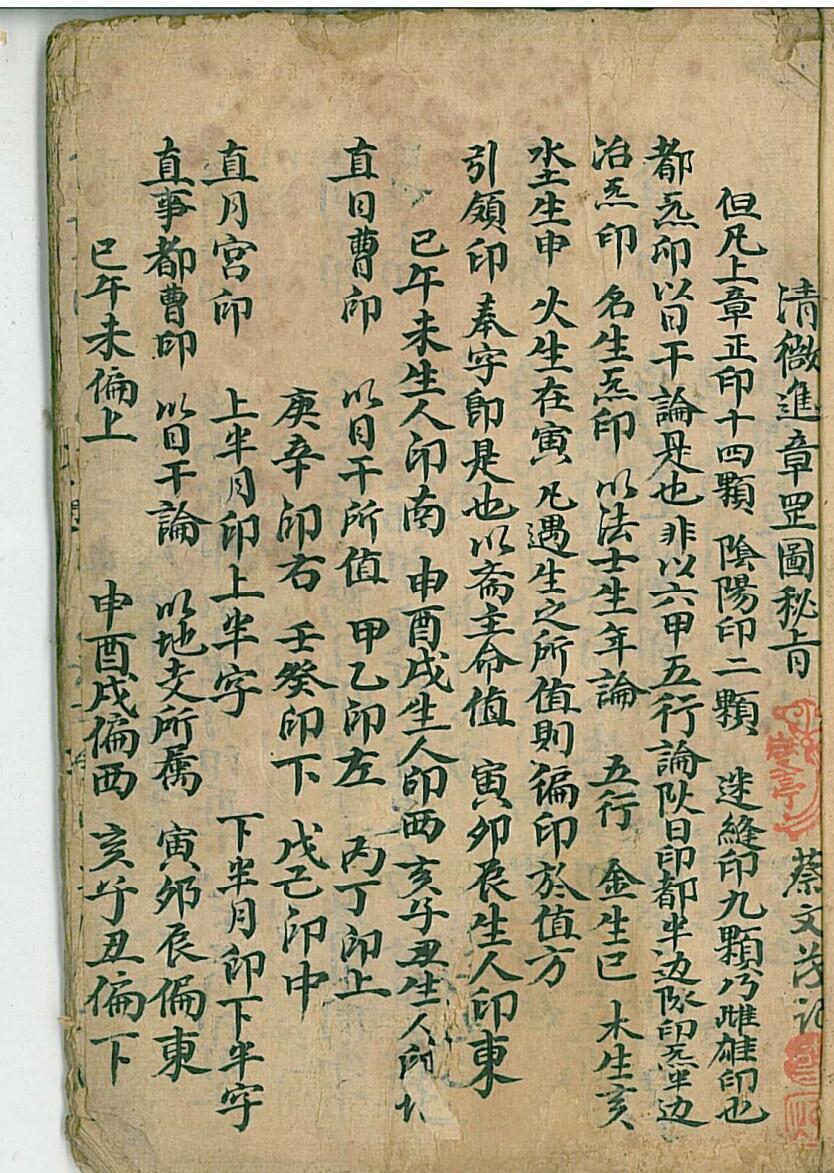 清微進章罡圖秘旨 蔡文茂記
但凡上章正印十四顆 陰陽印二顆 逆縫印九顆乃雌雄印也
都炁印以日干論是也 非以六甲五行論 陽日印都半边 陰印炁半边
治炁印 名生炁印 以法士生年論 五行 金生巳 木生亥
水土生申 火生在寅 凡遇生之所值則徧印於值方
引領印 奉字印是也 以斎主命值 寅卯辰生人印東
巳午未生人印南 申酉戌生人印西 亥子丑生人印北
直日曹印 以日干所值 甲乙印左 丙丁印上
庚辛印右 壬癸印下 戊己印中
直月宮印 上半月印上半字 下半月印下半字
直事都曹印 以日干論 以地支所属 寅卯辰偏東
巳午未偏上 申酉戌偏西 亥子丑偏下